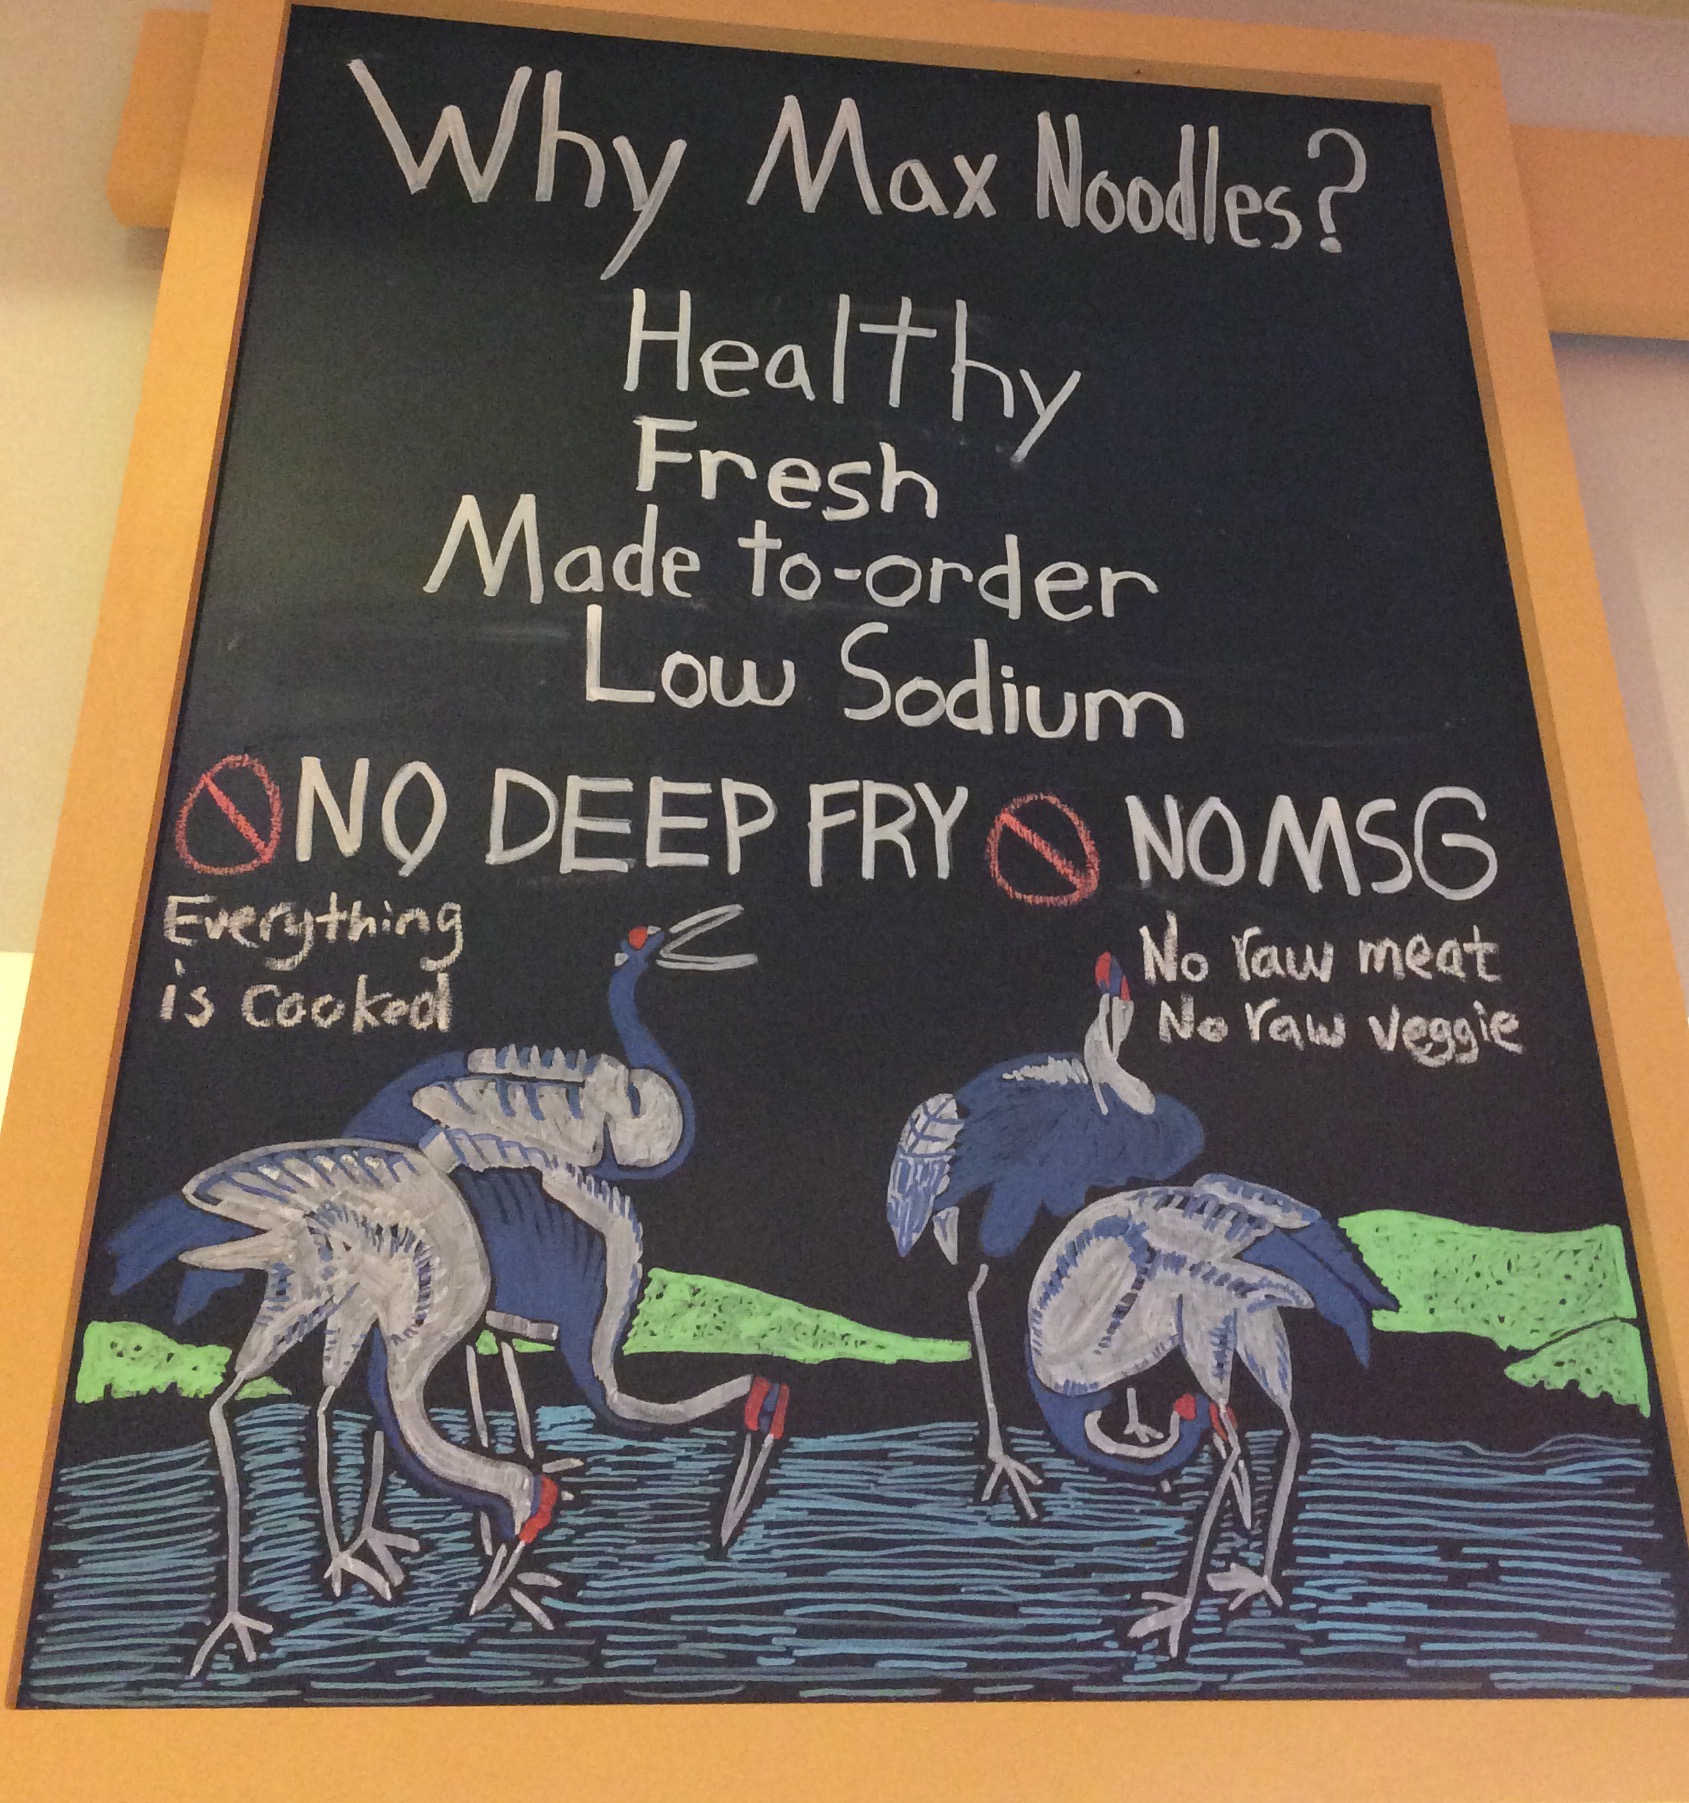 Why Max Noodles?
Healthy
Fresh
Made to-order
Low Sodium
NO DEEP FRY NO MSG
Everything
is cooked
No raw meat
No raw veggie